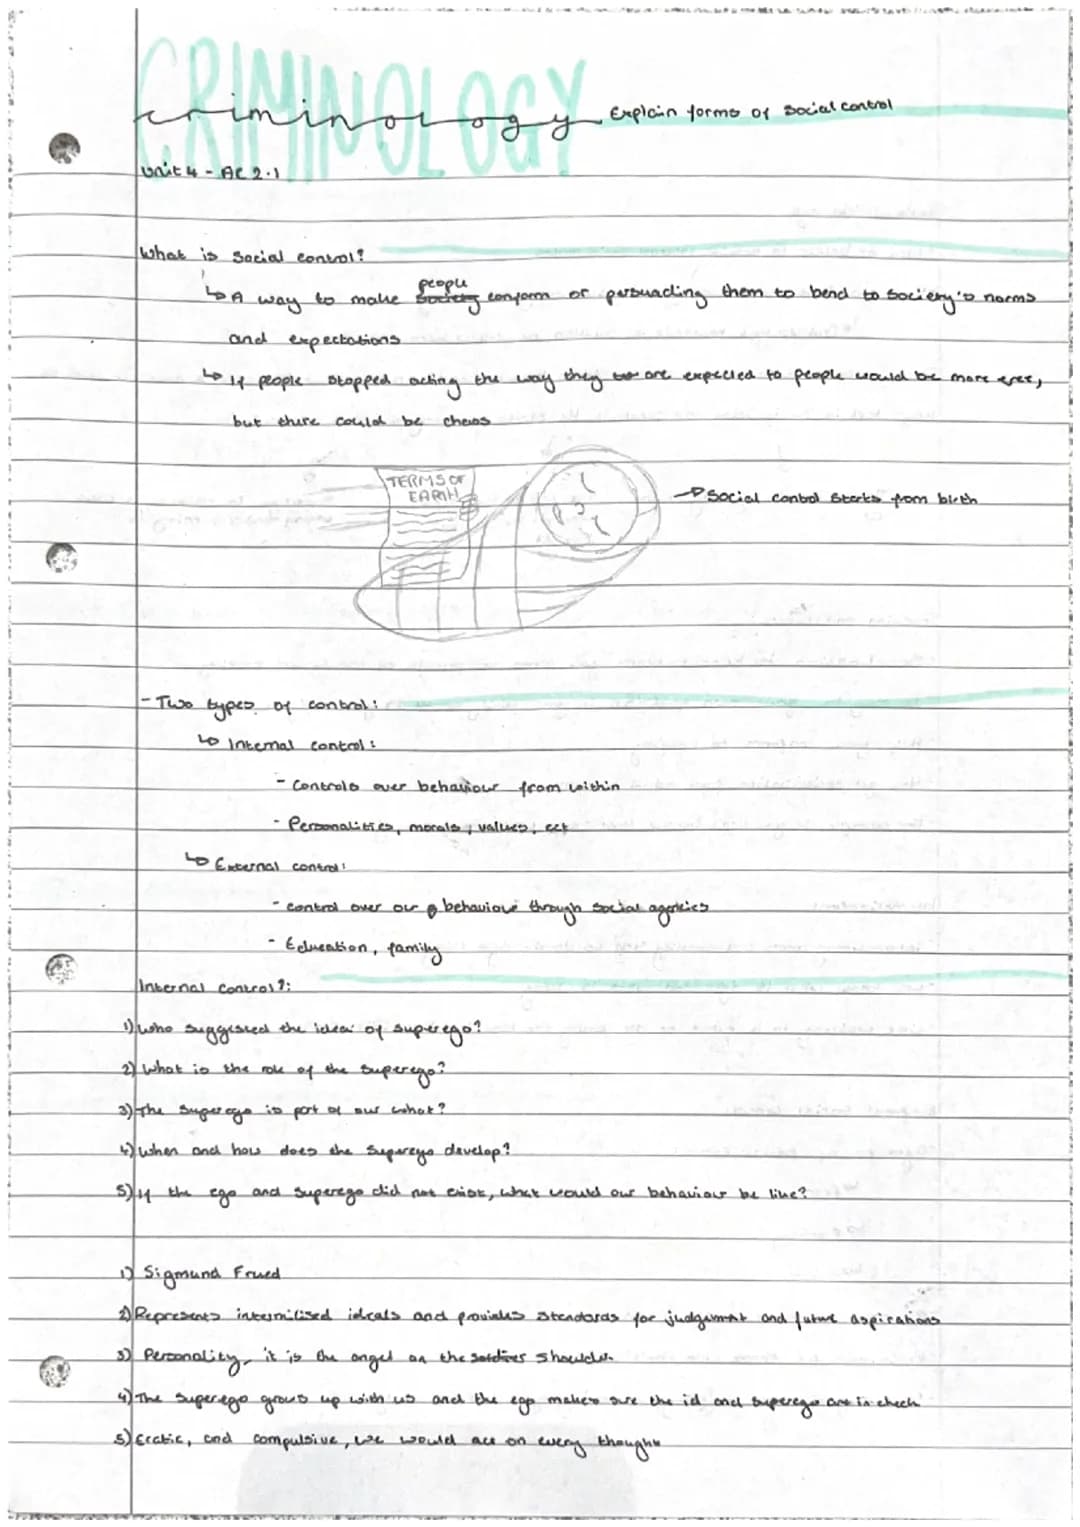 CRIMINOLOGY
criminology Explain forms of social control
Unit 4 - AC 2.1
What is social control?
↳ A way to make people conform or persuading them to bend to society's norms
and expectations
↳ If people stopped acting the way they are expected to people would be more free,
but there could be chaos
TERMS OF
EARTH
→ Social control starts from birth
- Two types of control:
↳ Internal control:
- Controls over behaviour from within
- Personalities, morals, values, ect
↳ External control:
- control over our behaviour through social agencies
- Education, family
Internal control?:
1) Who suggested the idea of superego?
2) What is the role of the superego?
3) The superego is part of our what?
4) When and how does the superego develop?
5) If the ego and superego did not exist, what would our behaviour be like?
1) Sigmund Frued
2) Represents internilised ideals and provides standards for judgement and future aspirations
3) Personality, it is the angel on the shoulder.
4) The superego grows up with us and the ego makes sure the id and superego are in check
5) Eratic, and compulsive, we would act on every thought